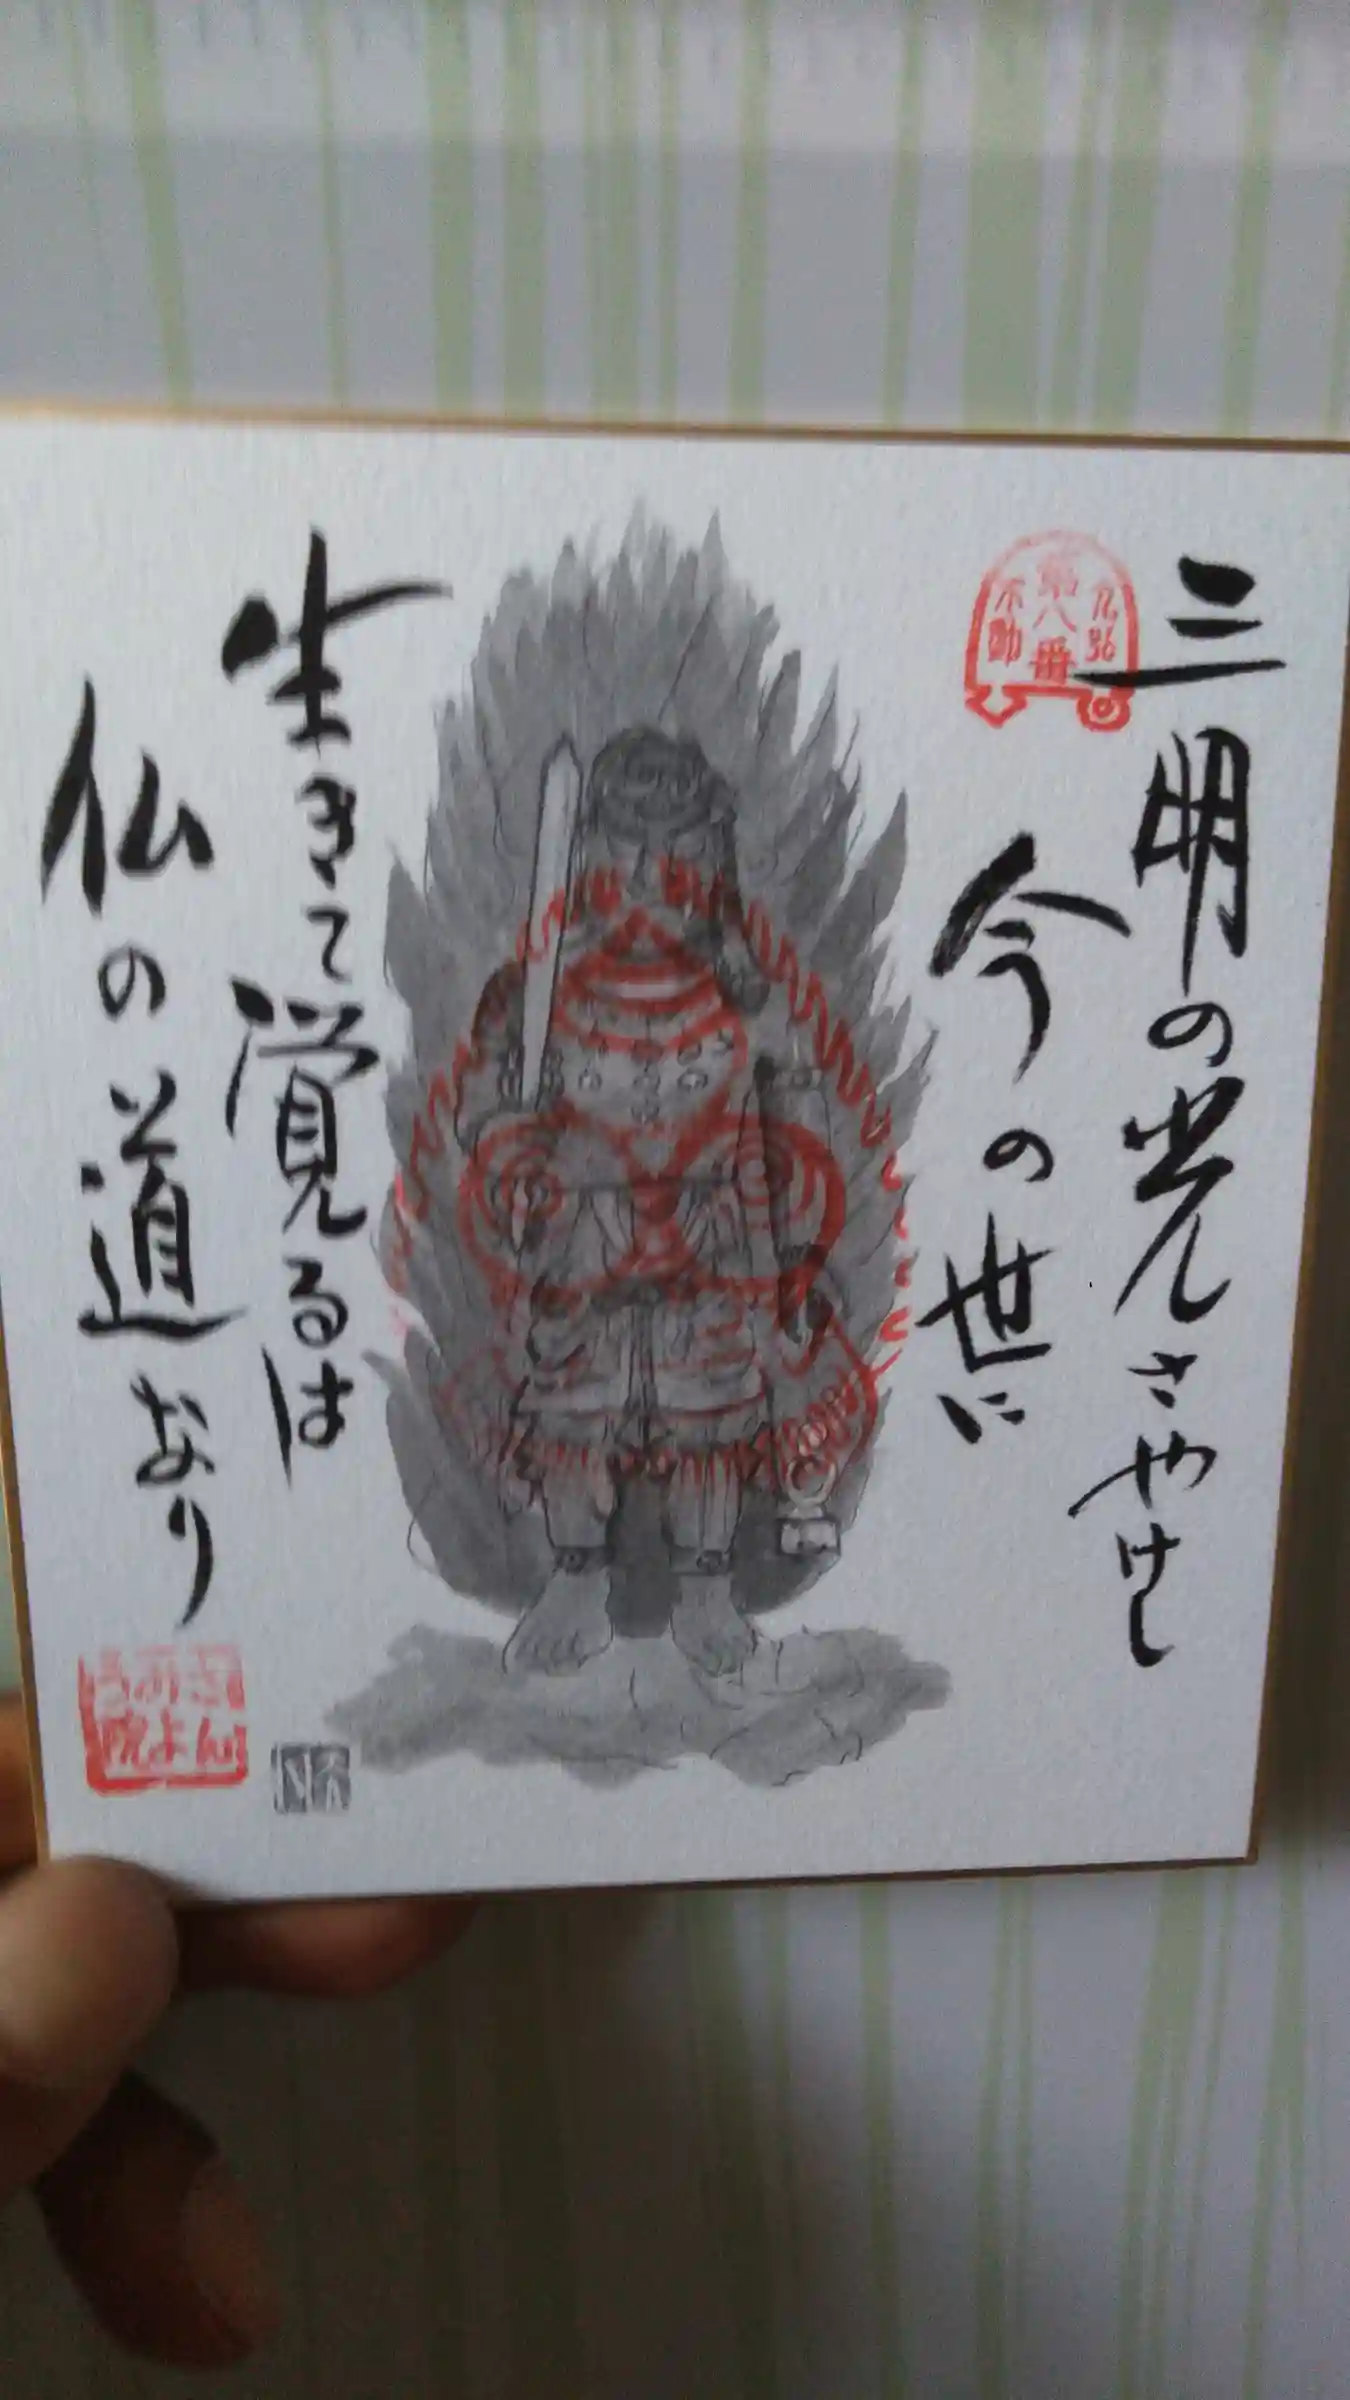 三明の光さやけし
今の世に
生きて覚るは
仏の道なり
第八番
不動